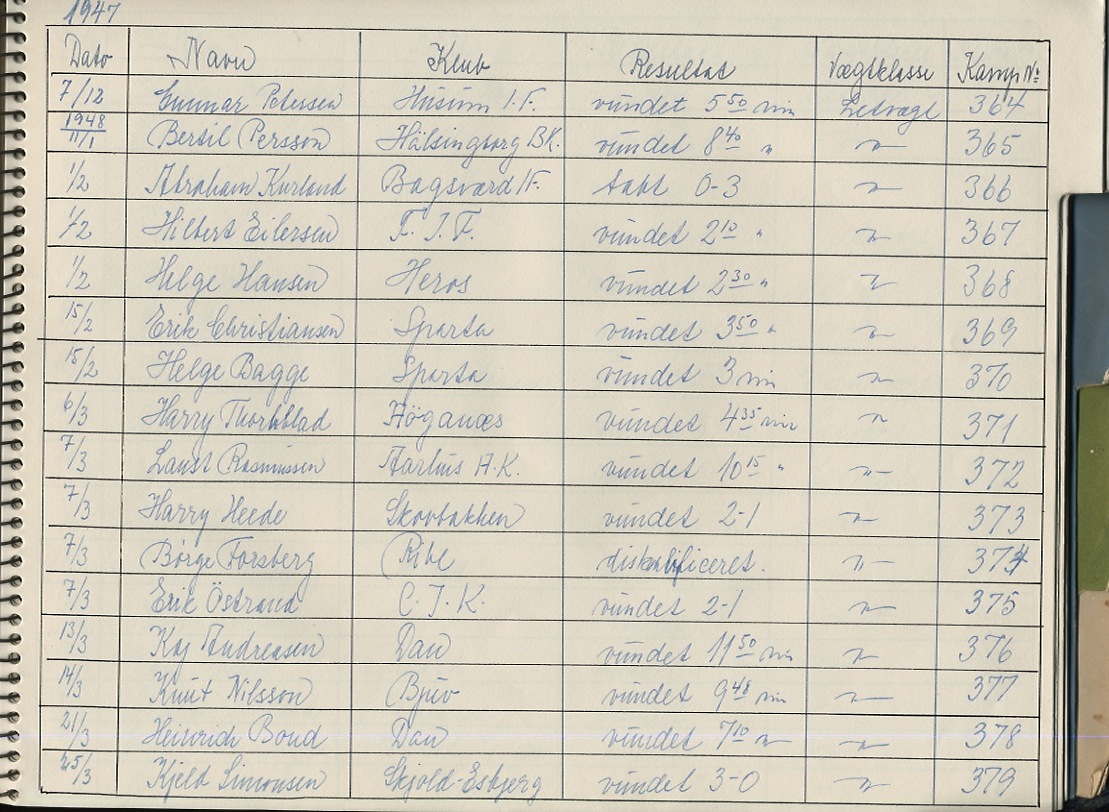 1947
Dato Navn Klub Resultat Vægtklasse Kamp No
7/12 Gunnar Petersen Husum I.F. vundet 5 50 min Letvægt 364
1948
11/1 Bertil Persson Hälsingborg BK. vundet 8 40 " " 365
1/2 Abraham Kurland Bagsværd IF. tabt 0-3 " 366
1/2 Hilbert Eilersen F.I.F. vundet 2 10 " " 367
1/2 Helge Hansen Heros vundet 2 30 " " 368
15/2 Erik Christiansen Sparta vundet 3 50 " " 369
15/2 Helge Bagge Sparta vundet 3 min " 370
6/3 Harry Thornblad Höganæs vundet 4 35 min " 371
7/3 Laust Rasmussen Aarhus A.K. vundet 10 15 " " 372
7/3 Harry Heede Skovbakken vundet 2-1 " 373
7/3 Børge Forsberg Ribe diskalificeret. " 374
7/3 Erik Östrand C.I.K. vundet 2-1 " 375
13/3 Kaj Andreasen Dan vundet 11 50 min " 376
14/3 Knut Nilsson Bjuv vundet 9 48 min " 377
21/3 Heinrich Bond Dan vundet 7 10 " " 378
25/3 Kjeld Simonsen Skjold-Esbjerg vundet 3-0 " 379